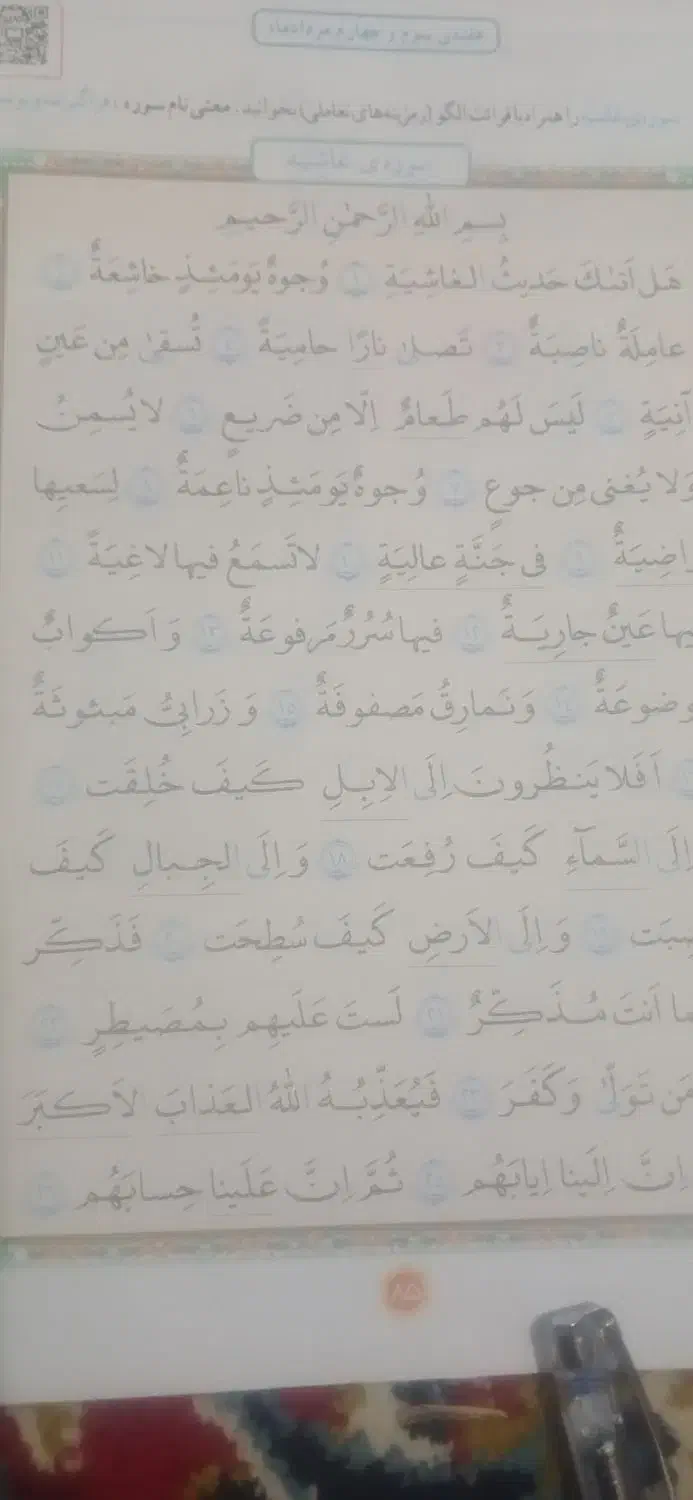 هفته‌ی سوم و چهارم مردادماه
را همراه با قرائت الگو (رمزینه‌های تعاملی) بخوانید. معنی نام سوره
سوره‌ی غاشیه
بِسمِ اللهِ الرَّحمٰنِ الرَّحیمِ
هَل اَتىٰكَ حَديثُ الغاشِيَةِ ١ وُجوهٌ يَومَئِذٍ خاشِعَةٌ ٢
عامِلَةٌ ناصِبَةٌ ٣ تَصلىٰ نارًا حامِيَةً ٤ تُسقىٰ مِن عَينٍ
آنِيَةٍ ٥ لَيسَ لَهُم طَعامٌ اِلّا مِن ضَريعٍ ٦ لا يُسمِنُ
وَلا يُغنى مِن جوعٍ ٧ وُجوهٌ يَومَئِذٍ ناعِمَةٌ ٨ لِسَعيِها
راضِيَةٌ ٩ فى جَنَّةٍ عالِيَةٍ ١٠ لا تَسمَعُ فيها لاغِيَةً ١١
فيها عَينٌ جارِيَةٌ ١٢ فيها سُرُرٌ مَرفوعَةٌ ١٣ وَ اَكوابٌ
مَوضوعَةٌ ١٤ وَ نَمارِقُ مَصفوفَةٌ ١٥ وَ زَرابِىُّ مَبثوثَةٌ
١٦ اَفَلا يَنظُرونَ اِلَى الاِبِلِ كَيفَ خُلِقَت ١٧
وَ اِلَى السَّمآءِ كَيفَ رُفِعَت ١٨ وَ اِلَى الجِبالِ كَيفَ
نُصِبَت ١٩ وَ اِلَى الاَرضِ كَيفَ سُطِحَت ٢٠ فَذَكِّر
اِنَّما اَنتَ مُذَكِّرٌ ٢١ لَستَ عَلَيهِم بِمُصَيطِرٍ ٢٢
اِلّا مَن تَوَلّىٰ وَ كَفَرَ ٢٣ فَيُعَذِّبُهُ اللهُ العَذابَ الاَكبَرَ
٢٤ اِنَّ اِلَينا اِيابَهُم ٢٥ ثُمَّ اِنَّ عَلَينا حِسابَهُم ٢٦